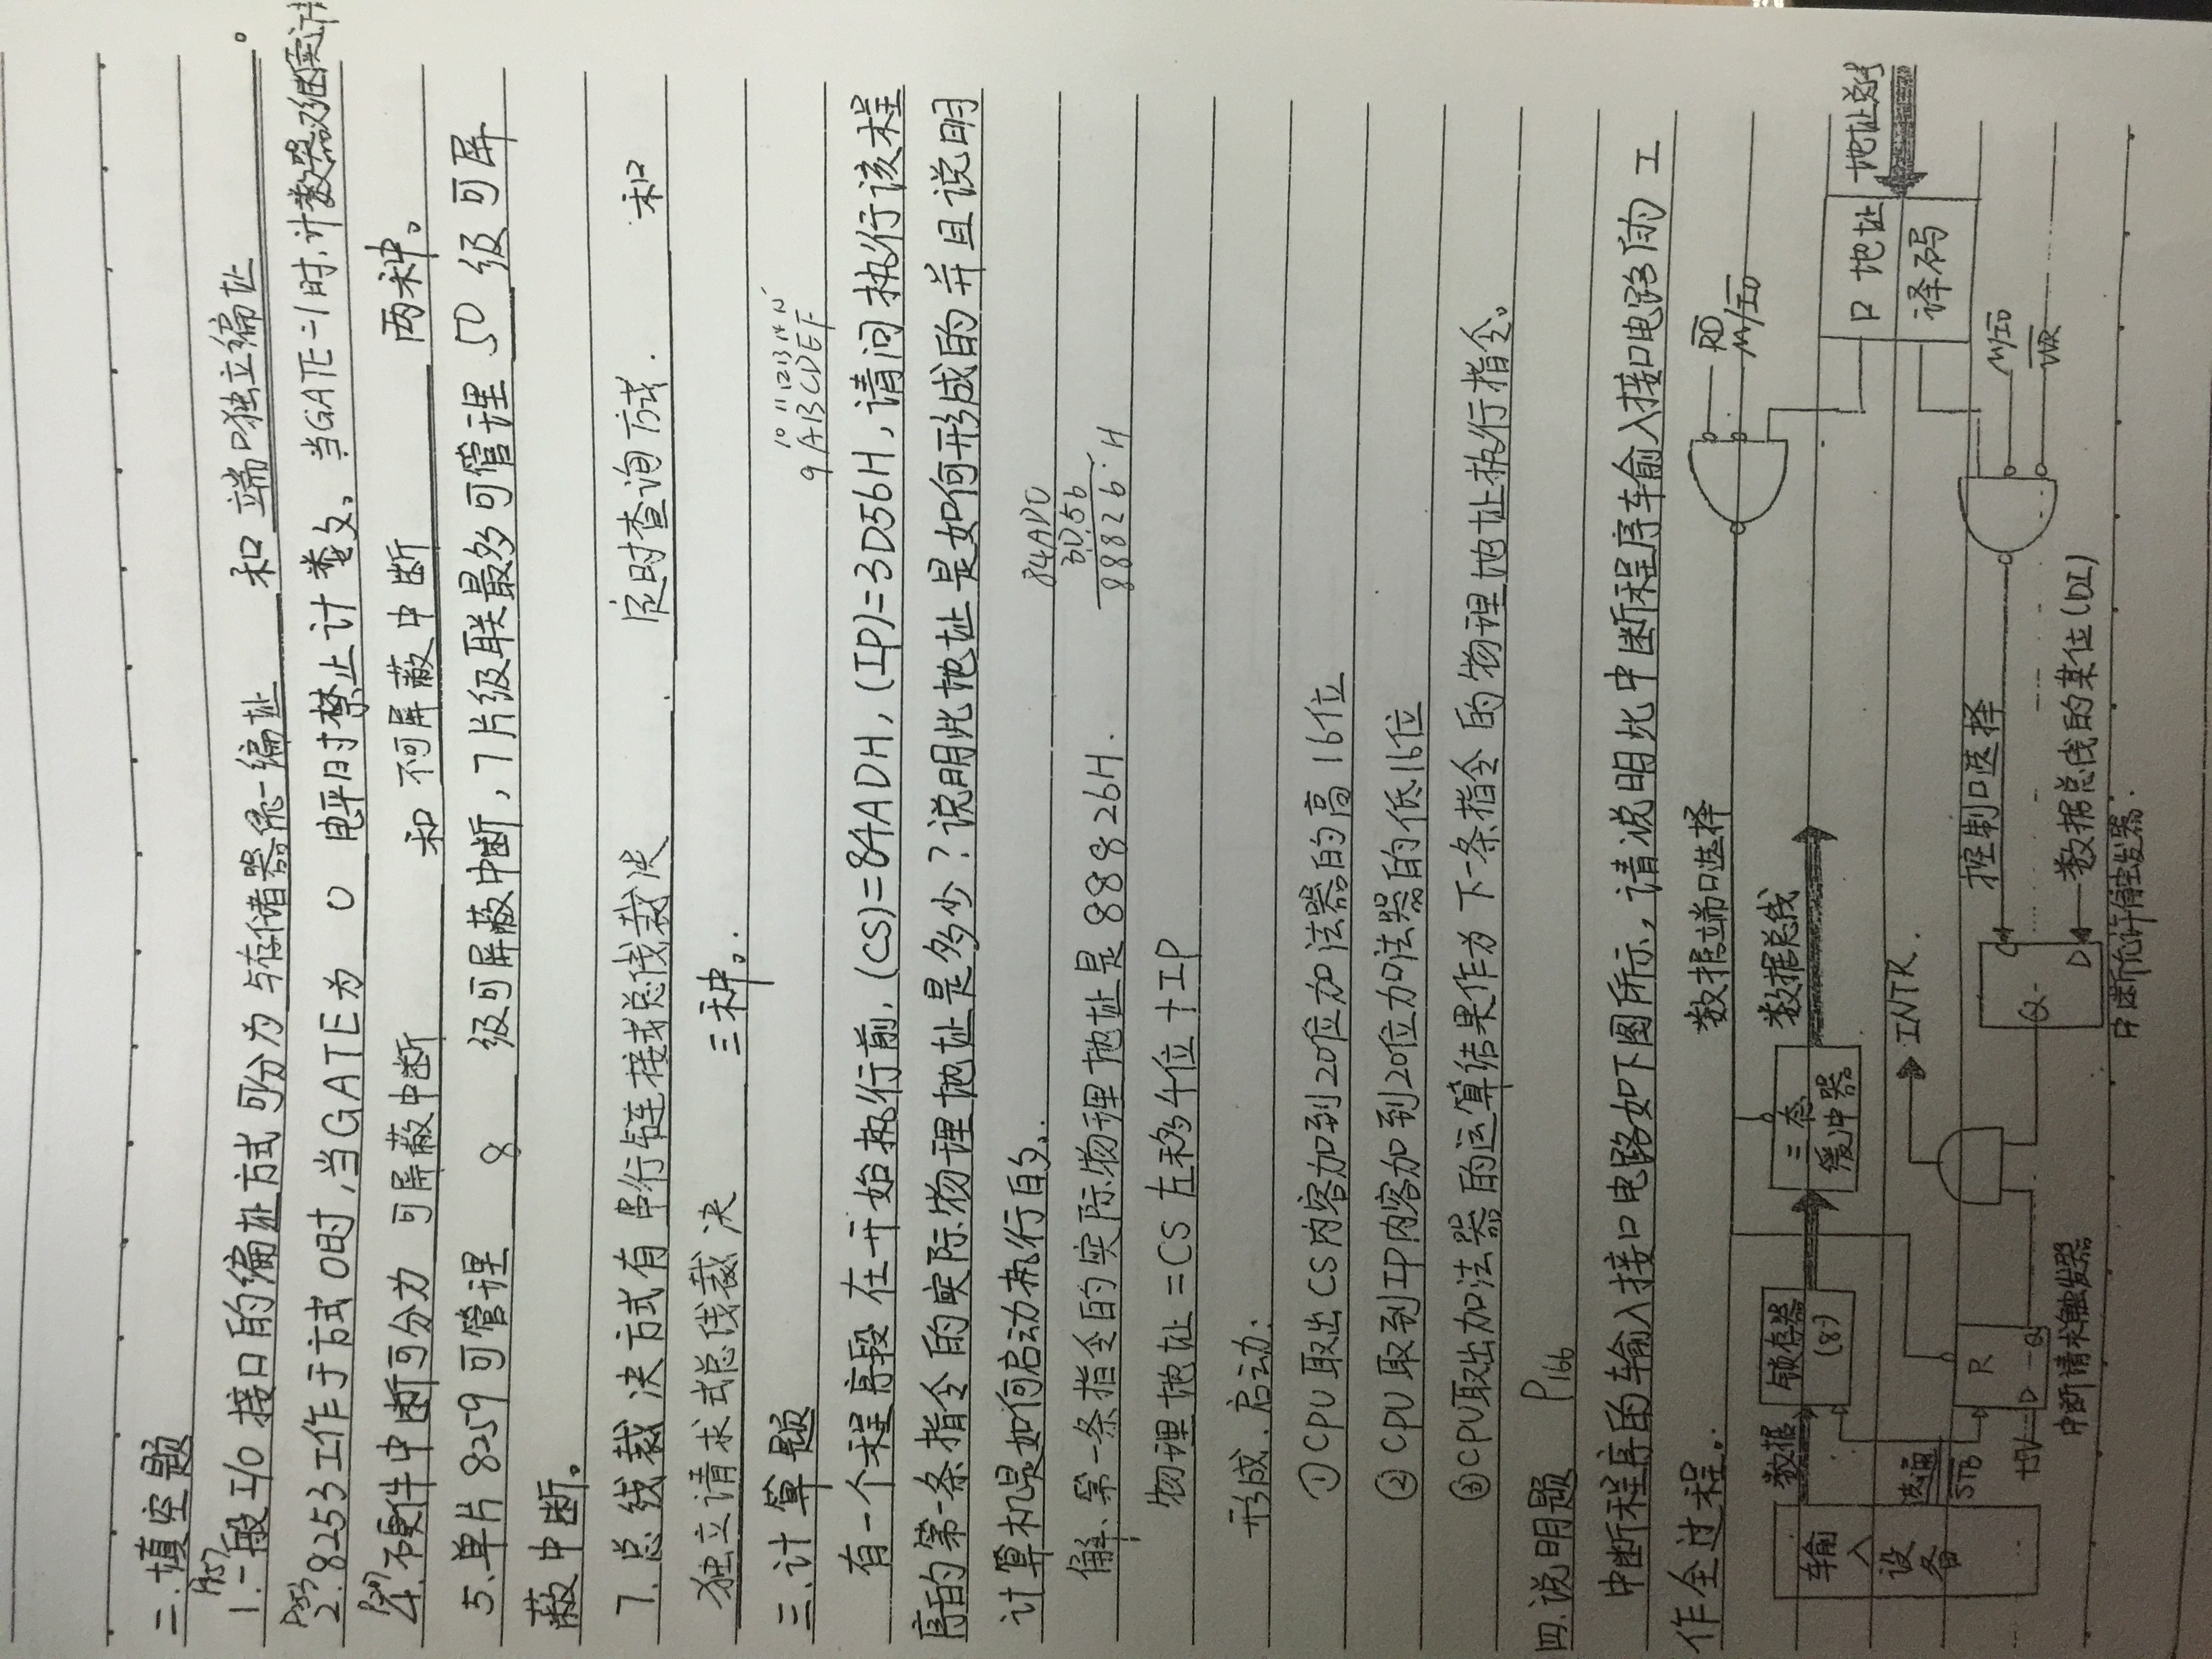 二.填空题
P157
1.一般I/O接口的编址方式可分为与存储器统一编址 和 端口独立编址 。
P253
2.8253工作于方式0时,当GATE为 0 电平时禁止计数。当GATE=1时,计数器又继续计
4.硬件中断可分为 可屏蔽中断 和 不可屏蔽中断 两种。
5.单片8259可管理 8 级可屏蔽中断,7片级联最多可管理 50 级可屏
蔽中断。
7.总线裁决方式有 串行链接式总线裁决 . 定时查询方式. 和
独立请求式总线裁决 三种。
10 11 12 13 14 15
三.计算题 9 A B C D E F
有一个程序段在开始执行前,(CS)=84ADH,(IP)=3D56H,请问执行该程
序的第一条指令的实际物理地址是多少?说明此地址是如何形成的并且说明
计算机是如何启动执行的。
84AD0
3D56
解.第一条指令的实际物理地址是88826H. 88826H
物理地址=CS左移4位+IP
形成.启动:
①CPU取出CS内容加到20位加法器的高16位
②CPU取到IP内容加到20位加法器的低16位
③CPU取出加法器的运算结果作为下一条指令的物理地址执行指令。
四.说明题 P166
中断程序的输入接口电路如下图所示,请说明此中断程序输入接口电路的工
作全过程。
数据端口选择 RD
M/IO
输入设备 数据 锁存器 (8) 三态缓冲器 数据总线
口地址译码 地址总线
选通 STB
INTR.
R
+5V D Q
中断请求触发器
控制口选择 M/IO
WR
C Q D
数据总线的某位(DI)
中断允许触发器.